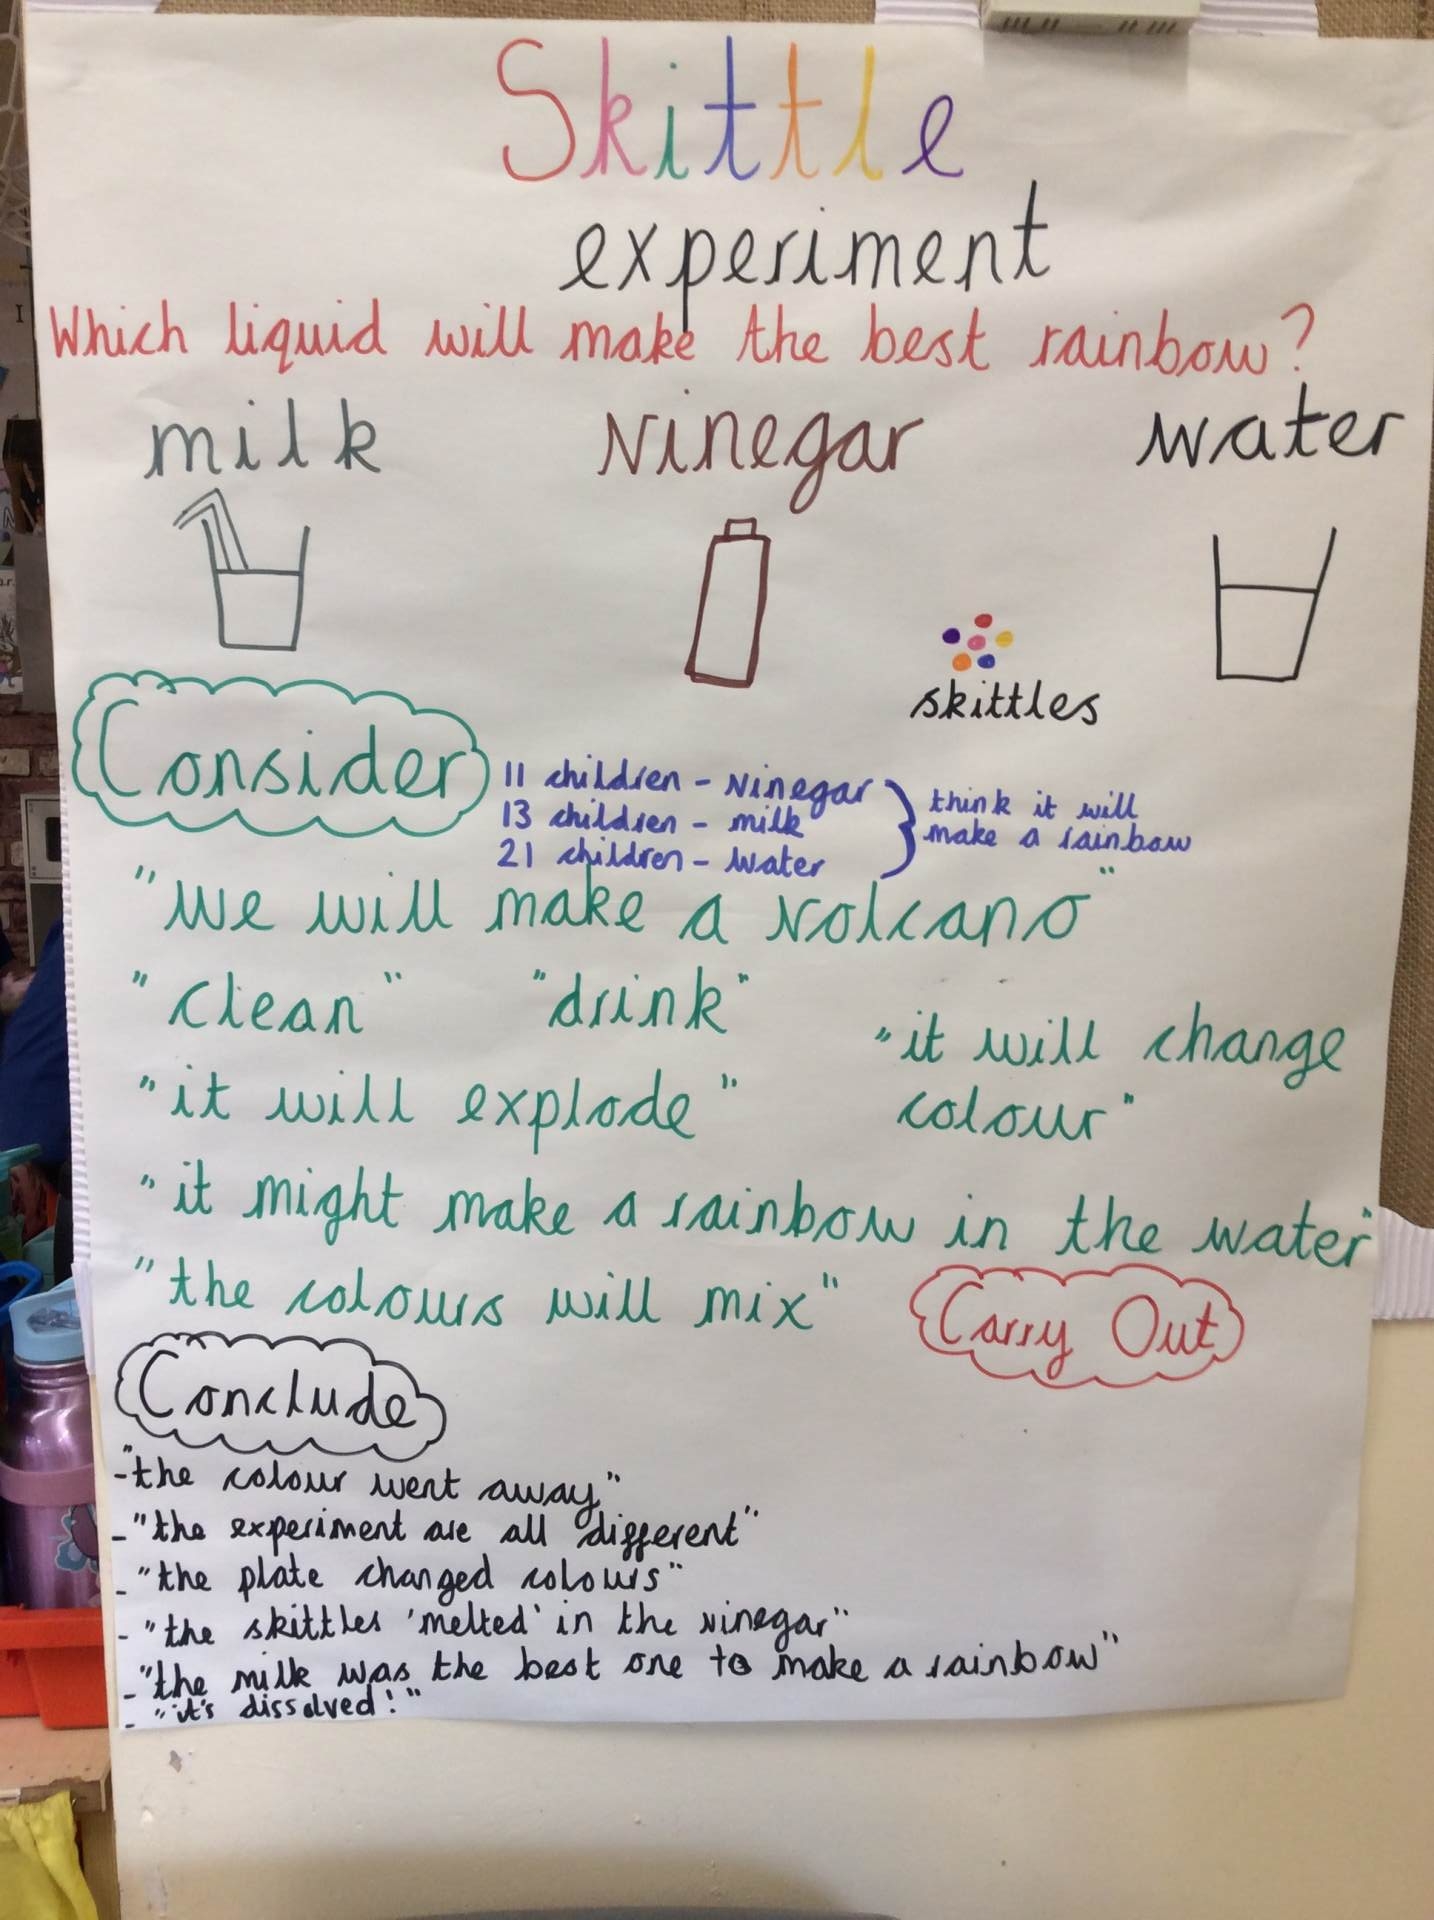 Skittle
experiment
Which liquid will make the best rainbow?
milk
vinegar
water
skittles
Consider
11 children - vinegar
13 children - milk
21 children - water
think it will
make a rainbow
"we will make a volcano"
"clean"
"drink"
"it will change
colour"
"it will explode"
"it might make a rainbow in the water"
"the colours will mix"
Carry Out
Conclude
-"the colour went away"
-"the experiment are all different"
-"the plate changed colours"
-"the skittles 'melted' in the vinegar"
-"the milk was the best one to make a rainbow"
-"it's dissolved!"